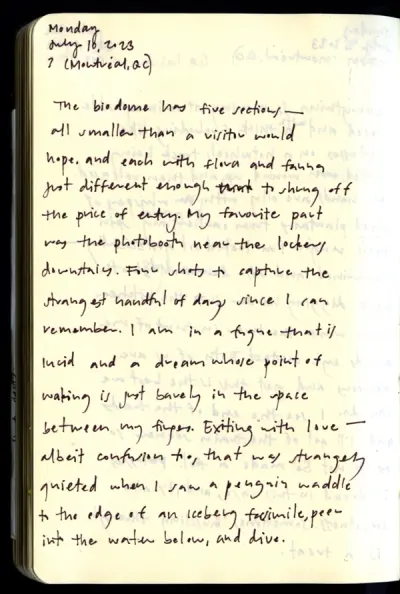 Monday
July 10, 2023
? (Montréal, QC)
The biodome has five sections —
all smaller than a visitor would
hope. and each with flora and fauna
just different enough to shrug off
the price of entry. My favorite part
was the photobooth near the lockers
downstairs. Four shots to capture the
strangest handful of days since I can
remember. I am in a fugue that is
lucid and a dream whose point of
waking is just barely in the space
between my fingers. Exiting with love —
albeit confusion too, that was strangely
quieted when I saw a penguin waddle
to the edge of an iceberg facsimile, peer
into the water below, and dive.